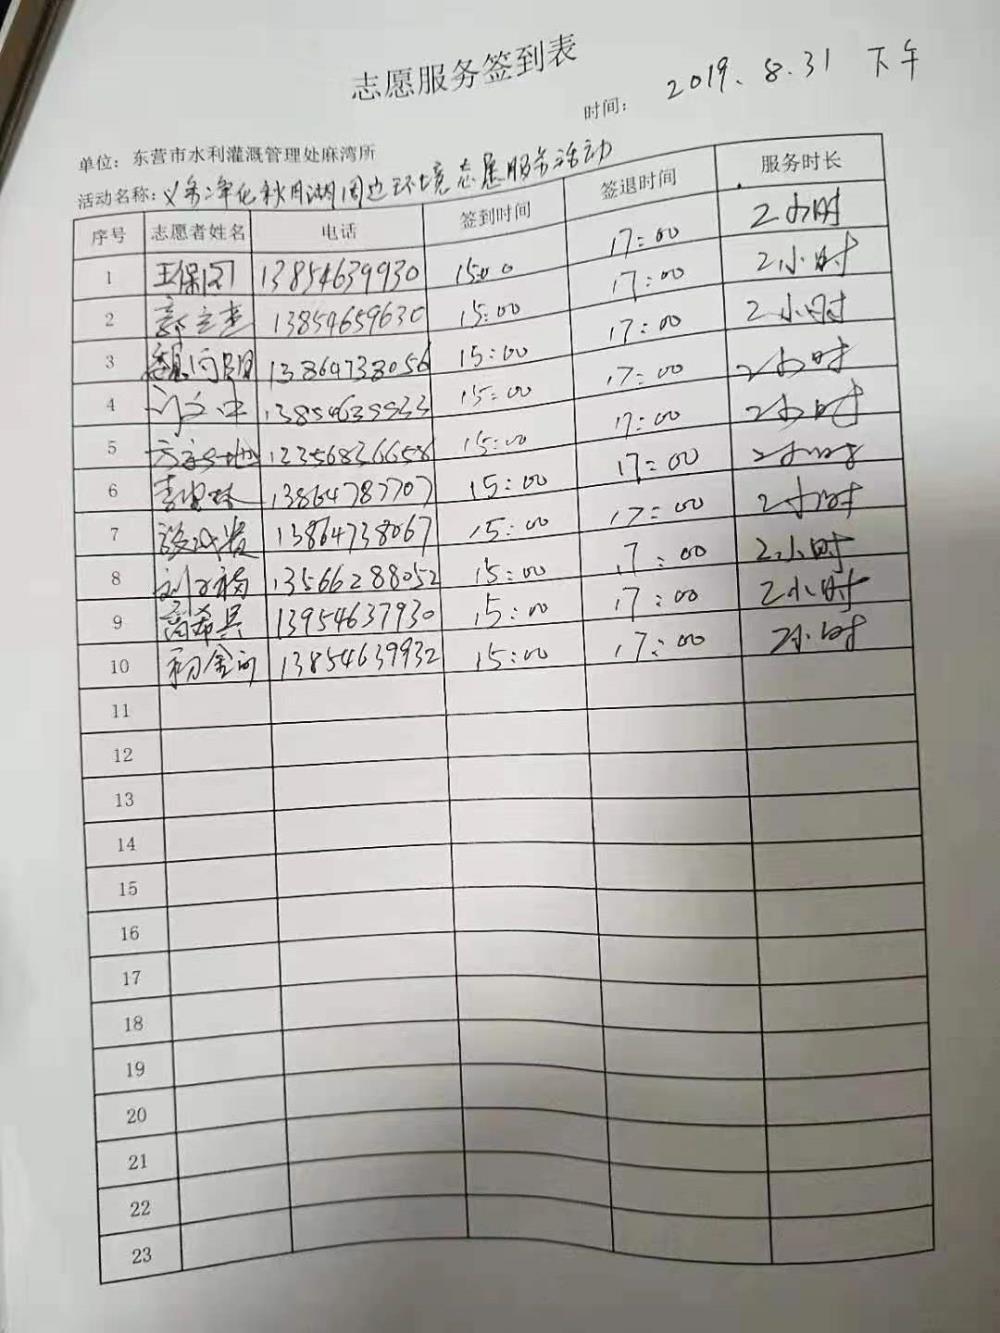 志愿服务签到表
时间： 2019.8.31 下午
单位：东营市水利灌溉管理处麻湾所
活动名称：义务净化秋月湖周边环境志愿服务活动
序号 志愿者姓名 电话 签到时间 签退时间 服务时长
1 王保国 13854639930 15:00 17:00 2小时
2 13854659630 15:00 17:00 2小时
3 魏向阳 13864738056 15:00 17:00 2小时
4 13854639933 15:00 17:00 2小时
5 12356836658 15:00 17:00 2小时
6 13864787707 15:00 17:00 2小时
7 13864738067 15:00 17:00 2小时
8 13566288052 15:00 17:00 2小时
9 高希兵 13954637930 15:00 17:00 2小时
10 13854639932 15:00 17:00 2小时
11
12
13
14
15
16
17
18
19
20
21
22
23